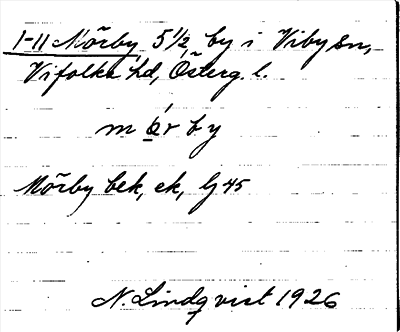 1-11 Mörby 5 1/2, by i Viby sn,
Vifolka hd, Österg. l.
mörby
Mörby bek, ek, Gj 45
N. Lindqvist 1926